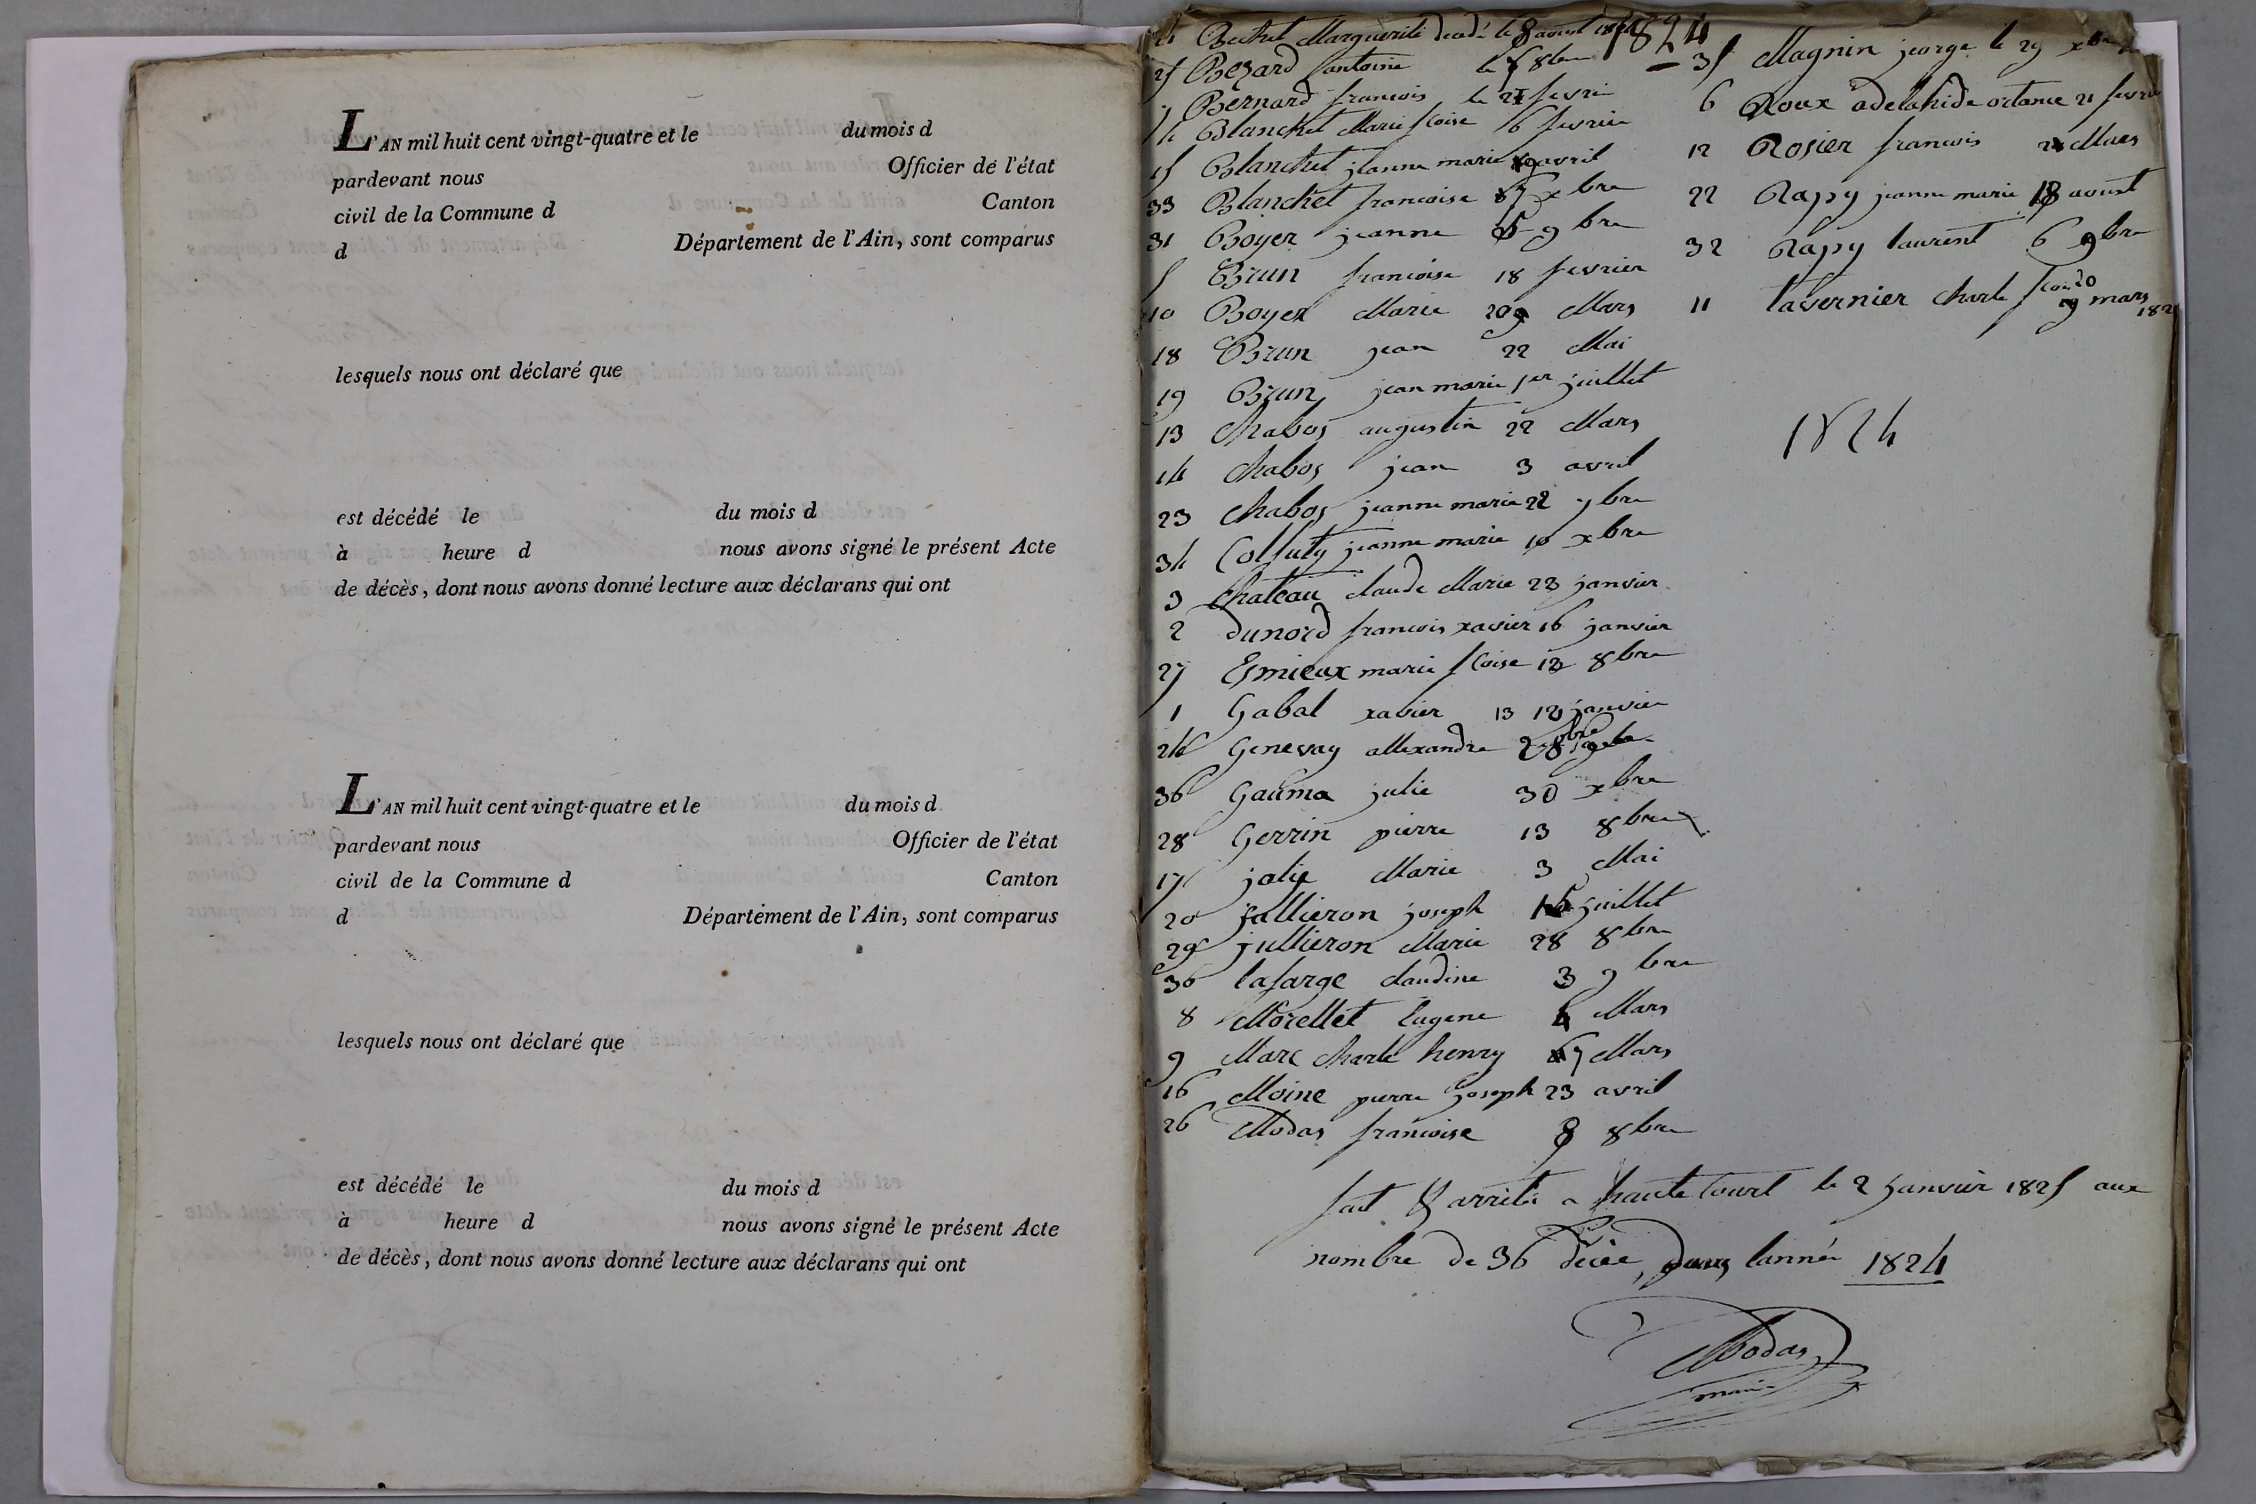 L'AN mil huit cent vingt-quatre et le du mois d
pardevant nous Officier de l'état
civil de la Commune d Canton
d Département de l'Ain, sont comparus
lesquels nous ont déclaré que
est décédé le du mois d
à heure d nous avons signé le présent Acte
de décès, dont nous avons donné lecture aux déclarans qui ont
L'AN mil huit cent vingt-quatre et le du mois d
pardevant nous Officier de l'état
civil de la Commune d Canton
d Département de l'Ain, sont comparus
lesquels nous ont déclaré que
est décédé le du mois d
à heure d nous avons signé le présent Acte
de décès, dont nous avons donné lecture aux déclarans qui ont
1824
Marguerite le 8 aoust
25 Bezard antoine le 8bre
7 Bernard francois le fevrie
4 Blanchet Marie fcoise 6 fevrier
15 Blanchet jeanne marie avril
33 Blanchet francoise 7 xbre
31 Boyer jeanne 5 9bre
5 Brun francoise 18 fevrier
10 Boyer Marie Mars
18 Brun jean 22 Mai
19 Brun jean marie 1er juillet
13 Chabos augustin 22 Mars
14 Chabos jean 3 avril
23 Chabos jeanne marie 22 7bre
34 jeanne marie 10 xbre
3 Chateau claude Marie 23 janvier
2 dunord francois xavier 16 janvier
27 Esmieux marie fcoise 12 8bre
1 Gabal xavier 13 janvier
24 Genevay allexandre 28
36 Gauma julie 30 xbre
28 Gerrin pierre 13 8bre
17 Marie 3 Mai
20 jullieron joseph 15 juillet
29 jullieron Marie 28 8bre
30 lafarge claudine 3 9bre
8 Morellet Eugene 4 Mars
9 Marc Charle henry 7 Mars
16 Moine pierre joseph 23 avril
26 Modas francoise 8 8bre
35 Magnin jeorge le 29 xbre
6 Roux adelahide octance 21 fevrie
12 Rosier francois Mars
22 Rapy jeanne marie 18 aoust
32 Rapy laurent 6 9bre
11 tavernier Charle mars
1824
fait & arrêté a hautecourt le 2 janvier 1825 aux
nombre de 36 décée, dans lannée 1824
Modas
maire